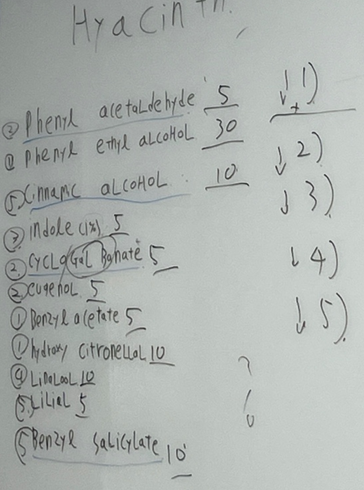 Hyacinth.
② Phenyl acetaldehyde 5 ↓ 1)
① Phenyl ethyl alcohol 30 ↓ 2)
⑤ Cinnamic alcohol : 10 ↓ 3)
③ indole (1%) 5
② Cyclo Gal Banate 5 ↓ 4)
② eugenol 5
① Benzyl acetate 5 ↓ 5)
① hydroxy citronellal 10
④ Linalool 10
⑤ Lilial 5
⑤ Benzyl salicylate 10